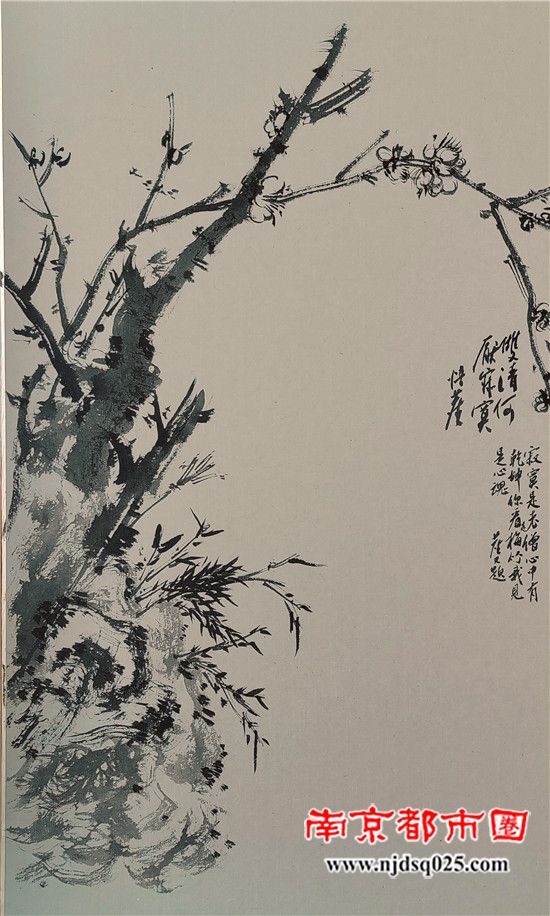 雙清何
厭寂寞
寂寞是老僧心中有
乾坤你看是梅竹我見
是心魂
又題
南京都市圈
www.njdsq025.com